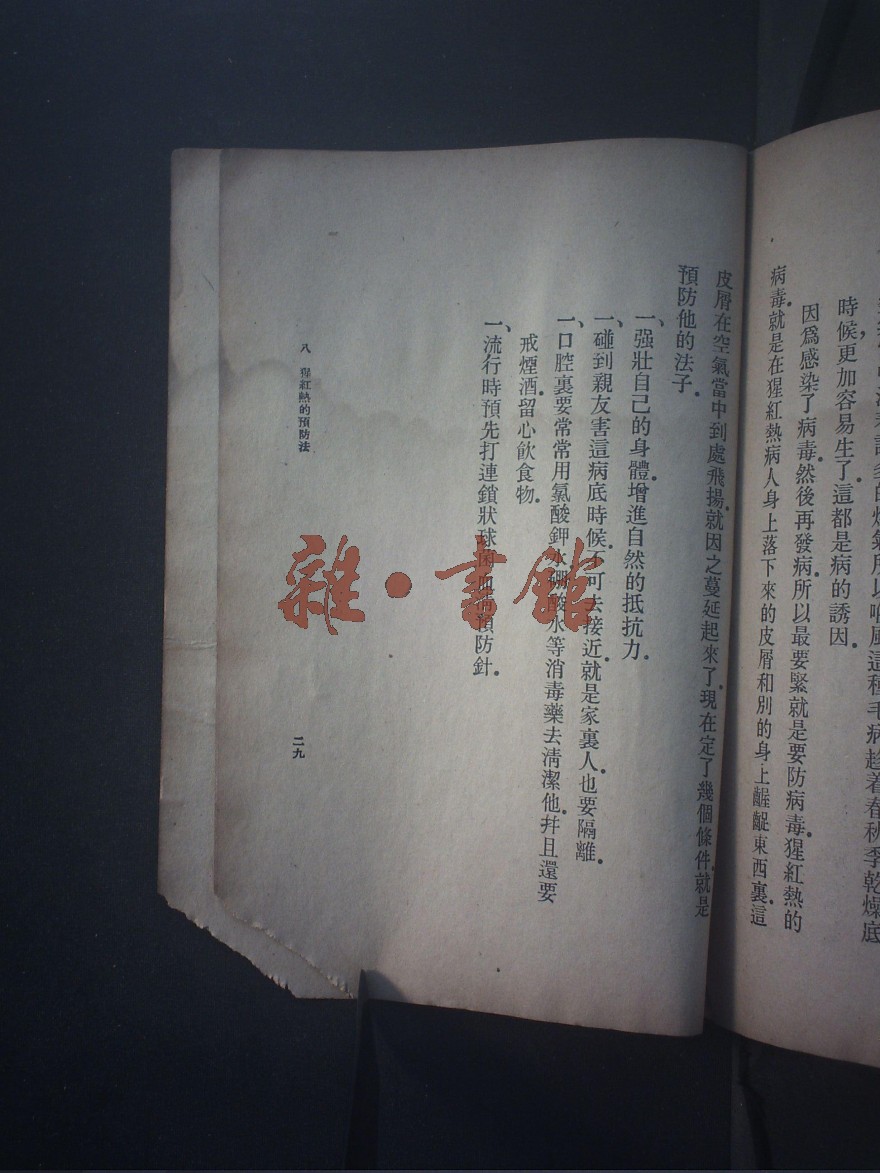 時候更加容易生了.這都是病的誘因.
因爲感染了病毒.然後再發病.所以最要緊就是要防病毒.猩紅熱的
病毒.就是在猩紅熱病人身上落下來的皮屑和別的身上齷齪東西裏.這
皮屑在空氣當中到處飛揚.就因之蔓延起來了.現在定了幾個條件.就是
預防他的法子.
一、强壯自己的身體.增進自然的抵抗力.
一、碰到親友害這病底時候.不可去接近.就是家裏人也要隔離.
一、口腔裏要常常用氯酸鉀水硼酸水等消毒藥去淸潔他.幷且還要
戒煙酒.留心飮食物.
一、流行時預先打連鎖狀球菌血淸預防針.
八 猩紅熱的預防法
二九
雜·書館